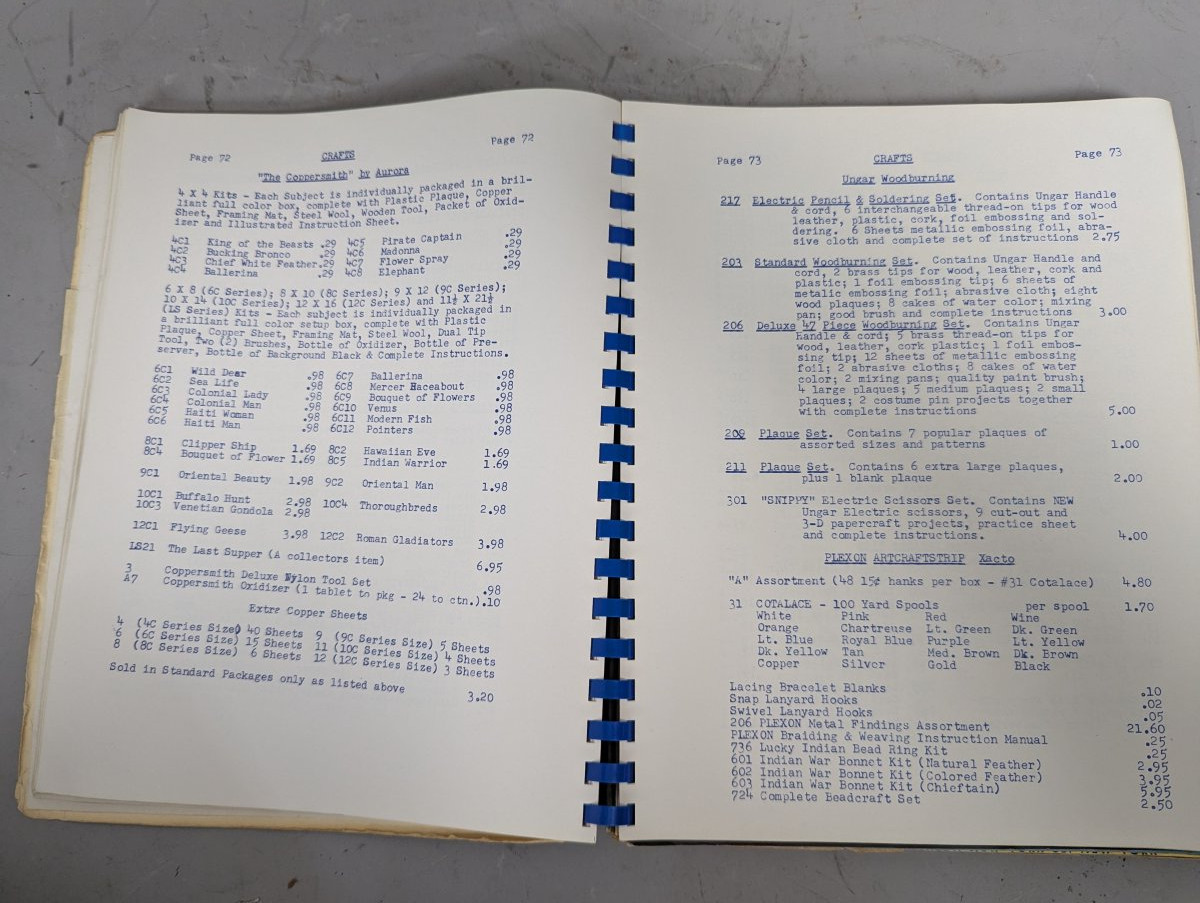 Page 72 CRAFTS Page 72
"The Coppersmith" by Aurora
4 X 4 Kits - Each Subject is individually packaged in a bril-
liant full color box, complete with Plastic Plaque, Copper
Sheet, Framing Mat, Steel Wool, Wooden Tool, Packet of Oxid-
izer and Illustrated Instruction Sheet.
4C1 King of the Beasts .29 4C5 Pirate Captain .29
4C2 Bucking Bronco .29 4C6 Madonna .29
4C3 Chief White Feather.29 4C7 Flower Spray .29
4C4 Ballerina .29 4C8 Elephant .29
6 X 8 (6C Series); 8 X 10 (8C Series); 9 X 12 (9C Series);
10 X 14 (10C Series); 12 X 16 (12C Series) and 11½ X 21½
(LS Series) Kits - Each subject is individually packaged in
a brilliant full color setup box, complete with Plastic
Plaque, Copper Sheet, Framing Mat, Steel Wool, Dual Tip
Tool, Two (2) Brushes, Bottle of Oxidizer, Bottle of Pre-
server, Bottle of Background Black & Complete Instructions.
6C1 Wild Dear .98 6C7 Ballerina .98
6C2 Sea Life .98 6C8 Mercer Haceabout .98
6C3 Colonial Lady .98 6C9 Bouquet of Flowers .98
6C4 Colonial Man .98 6C10 Venus .98
6C5 Haiti Woman .98 6C11 Modern Fish .98
6C6 Haiti Man .98 6C12 Pointers .98
8C1 Clipper Ship 1.69 8C2 Hawaiian Eve 1.69
8C4 Bouquet of Flower 1.69 8C5 Indian Warrior 1.69
9C1 Oriental Beauty 1.98 9C2 Oriental Man 1.98
10C1 Buffalo Hunt 2.98 10C4 Thoroughbreds 2.98
10C3 Venetian Gondola 2.98
12C1 Flying Geese 3.98 12C2 Roman Gladiators 3.98
LS21 The Last Supper (A collectors item) 6.95
3 Coppersmith Deluxe Nylon Tool Set .98
A7 Coppersmith Oxidizer (1 tablet to pkg - 24 to ctn.).10
Extre Copper Sheets
4 (4C Series Size) 40 Sheets 9 (9C Series Size) 5 Sheets
6 (6C Series Size) 15 Sheets 11 (10C Series Size) 4 Sheets
8 (8C Series Size) 6 Sheets 12 (12C Series Size) 3 Sheets
Sold in Standard Packages only as listed above 3.20
Page 73 CRAFTS Page 73
Ungar Woodburning
217 Electric Pencil & Soldering Set. Contains Ungar Handle
& cord, 6 interchangeable thread-on tips for wood
leather, plastic, cork, foil embossing and sol-
dering. 6 Sheets metallic embossing foil, abra-
sive cloth and complete set of instructions 2.75
203 Standard Woodburning Set. Contains Ungar Handle and
cord, 2 brass tips for wood, leather, cork and
plastic; 1 foil embossing tip; 6 sheets of
metalic embossing foil; abrasive cloth; eight
wood plaques; 8 cakes of water color; mixing
pan; good brush and complete instructions 3.00
206 Deluxe 47 Piece Woodburning Set. Contains Ungar
Handle & cord; 5 brass thread-on tips for
wood, leather, cork plastic; 1 foil embos-
sing tip; 12 sheets of metallic embossing
foil; 2 abrasive cloths; 8 cakes of water
color; 2 mixing pans; quality paint brush;
4 large plaques; 5 medium plaques; 2 small
plaques; 2 costume pin projects together
with complete instructions 5.00
209 Plaque Set. Contains 7 popular plaques of
assorted sizes and patterns 1.00
211 Plaque Set. Contains 6 extra large plaques,
plus 1 blank plaque 2.00
301 "SNIPPY" Electric Scissors Set. Contains NEW
Ungar Electric scissors, 9 cut-out and
3-D papercraft projects, practice sheet
and complete instructions. 4.00
PLEXON ARTCRAFTSTRIP Xacto
"A" Assortment (48 15¢ hanks per box - #31 Cotalace) 4.80
31 COTALACE - 100 Yard Spools per spool 1.70
White Pink Red Wine
Orange Chartreuse Lt. Green Dk. Green
Lt. Blue Royal Blue Purple Lt. Yellow
Dk. Yellow Tan Med. Brown Dk. Brown
Copper Silver Gold Black
Lacing Bracelet Blanks .10
Snap Lanyard Hooks .02
Swivel Lanyard Hooks .05
206 PLEXON Metal Findings Assortment 21.60
PLEXON Braiding & Weaving Instruction Manual .25
736 Lucky Indian Bead Ring Kit .25
601 Indian War Bonnet Kit (Natural Feather) 2.95
602 Indian War Bonnet Kit (Colored Feather) 3.95
603 Indian War Bonnet Kit (Chieftain) 5.95
724 Complete Beadcraft Set 2.50